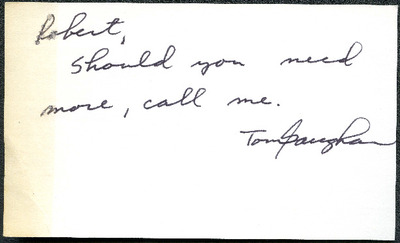 Robert,
Should you need
more, call me.
Tom Vaughan